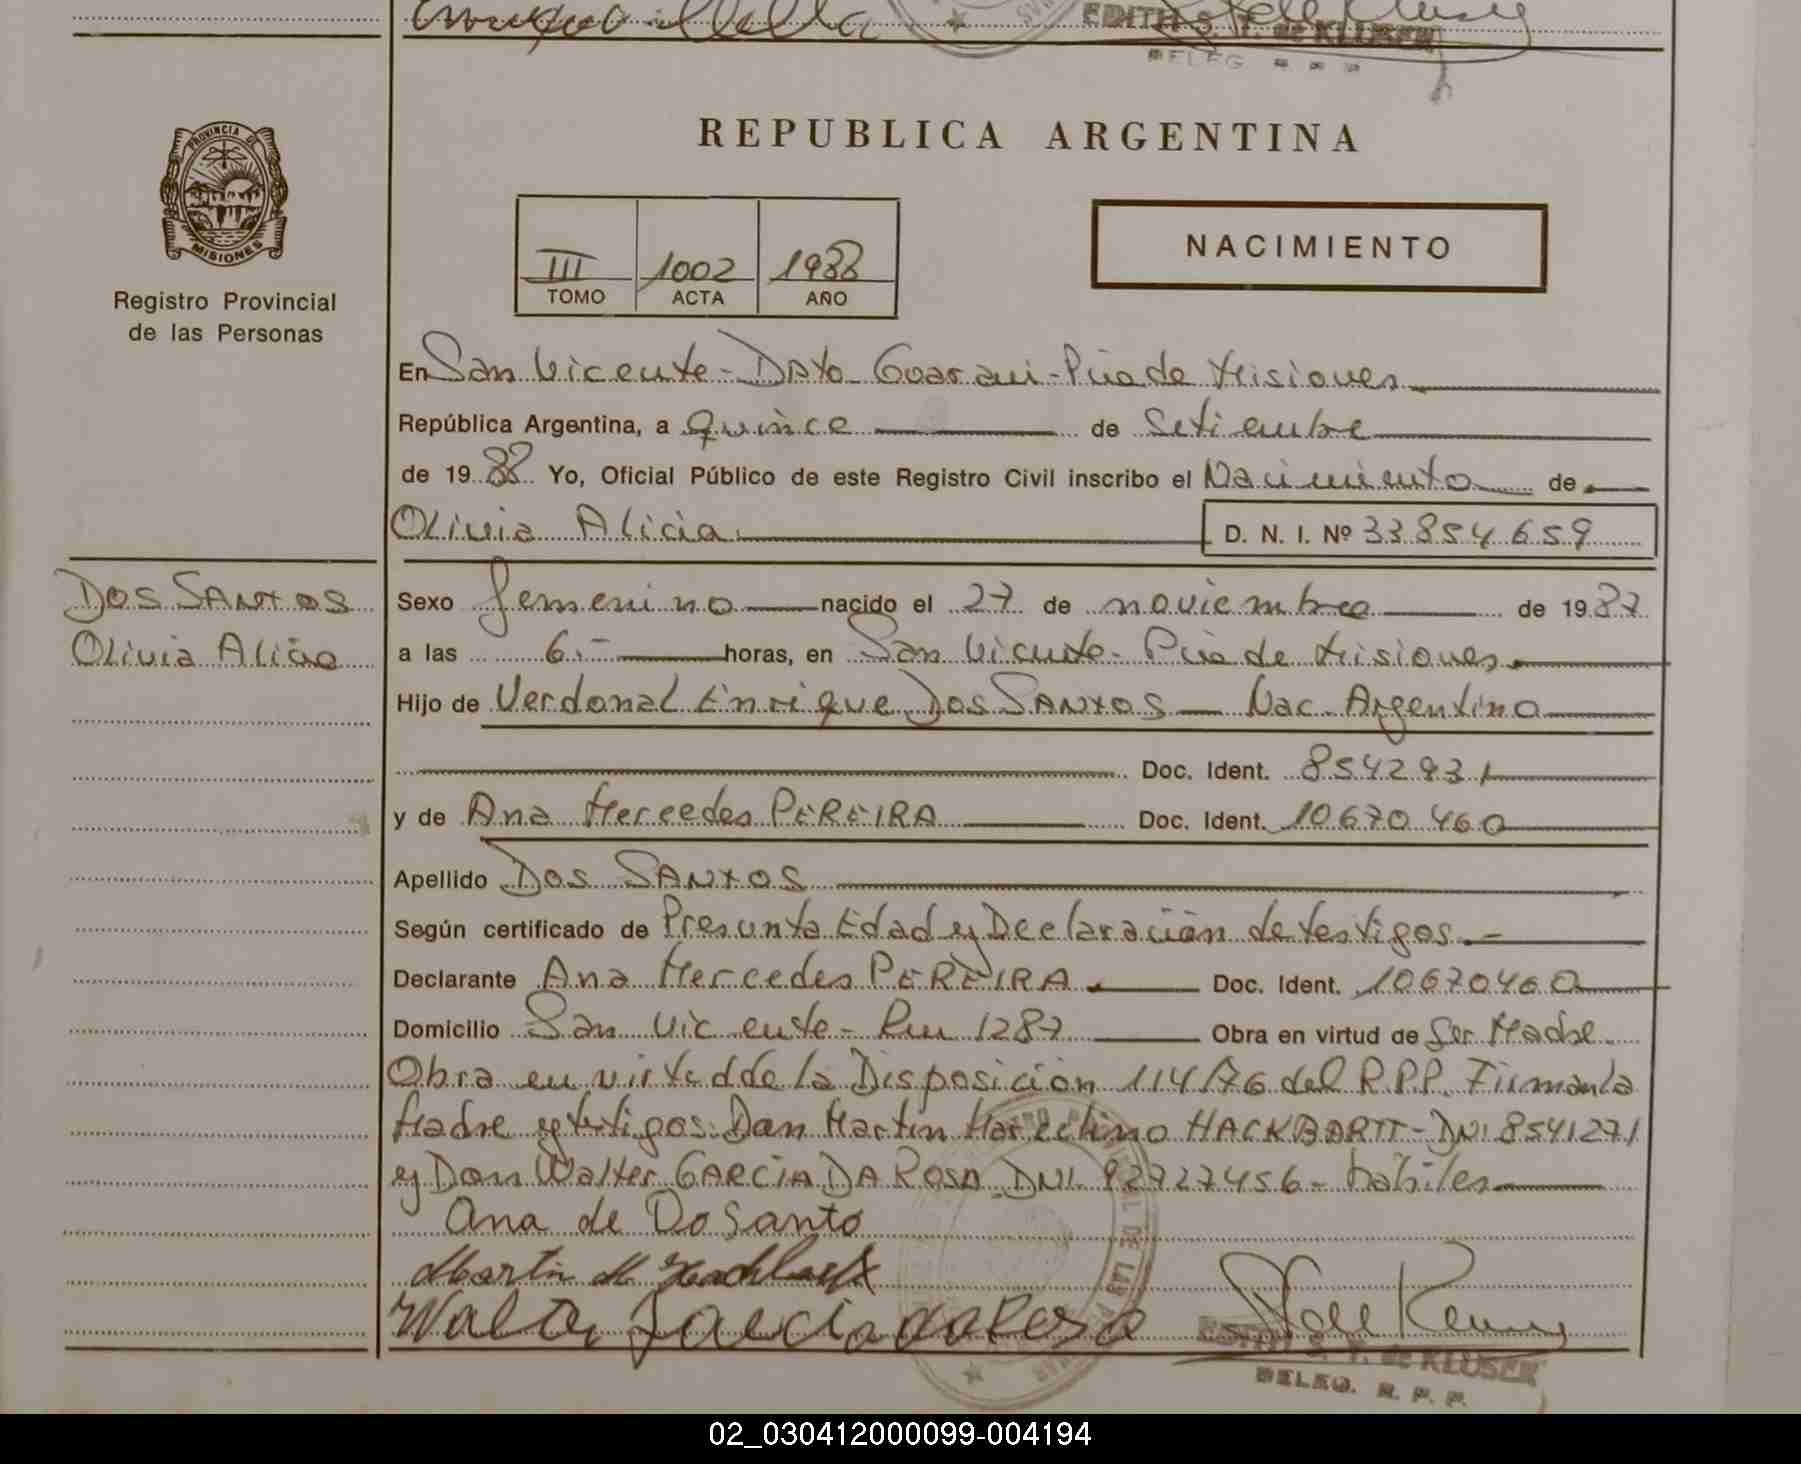 EDITH S. T. de KLUSER
DELEG. R. P. P.
REPUBLICA ARGENTINA
PROVINCIA DE
MISIONES
Registro Provincial
de las Personas
III 1002 1988
TOMO ACTA AÑO
NACIMIENTO
En San Vicente - Dpto Guarani - Pcia de Misiones
República Argentina, a quince de Setiembre
de 19 88 Yo, Oficial Público de este Registro Civil inscribo el Nacimiento de
Olivia Alicia D. N. I. Nº 33854659
DOS SANTOS
Olivia Alicia
Sexo femenino nacido el 27 de noviembre de 1987
a las 6.- horas, en San Vicente - Pcia de Misiones
Hijo de Verdonal Enrique DOS SANTOS — Nac. Argentino
Doc. Ident. 8542931
y de Ana Mercedes PEREIRA Doc. Ident. 10670460
Apellido DOS SANTOS
Según certificado de Presunta Edad y Declaración de testigos.-
Declarante Ana Mercedes PEREIRA Doc. Ident. 10670460
Domicilio San Vicente - Km 1287 Obra en virtud de Ser Madre
Obra en virtud de la Disposición 114/76 del R.P.P. Firman la
Madre y testigos: Don Martin Marcelino HACKBARTT - DNI 8541271
y Don Walter GARCIA DA ROSA DNI. 92727456 - habiles
Ana de Do Santo
Martin M
Walter Garcia da Rosa
EDITH S. T. de KLUSER
DELEG. R. P. P.
02_030412000099-004194